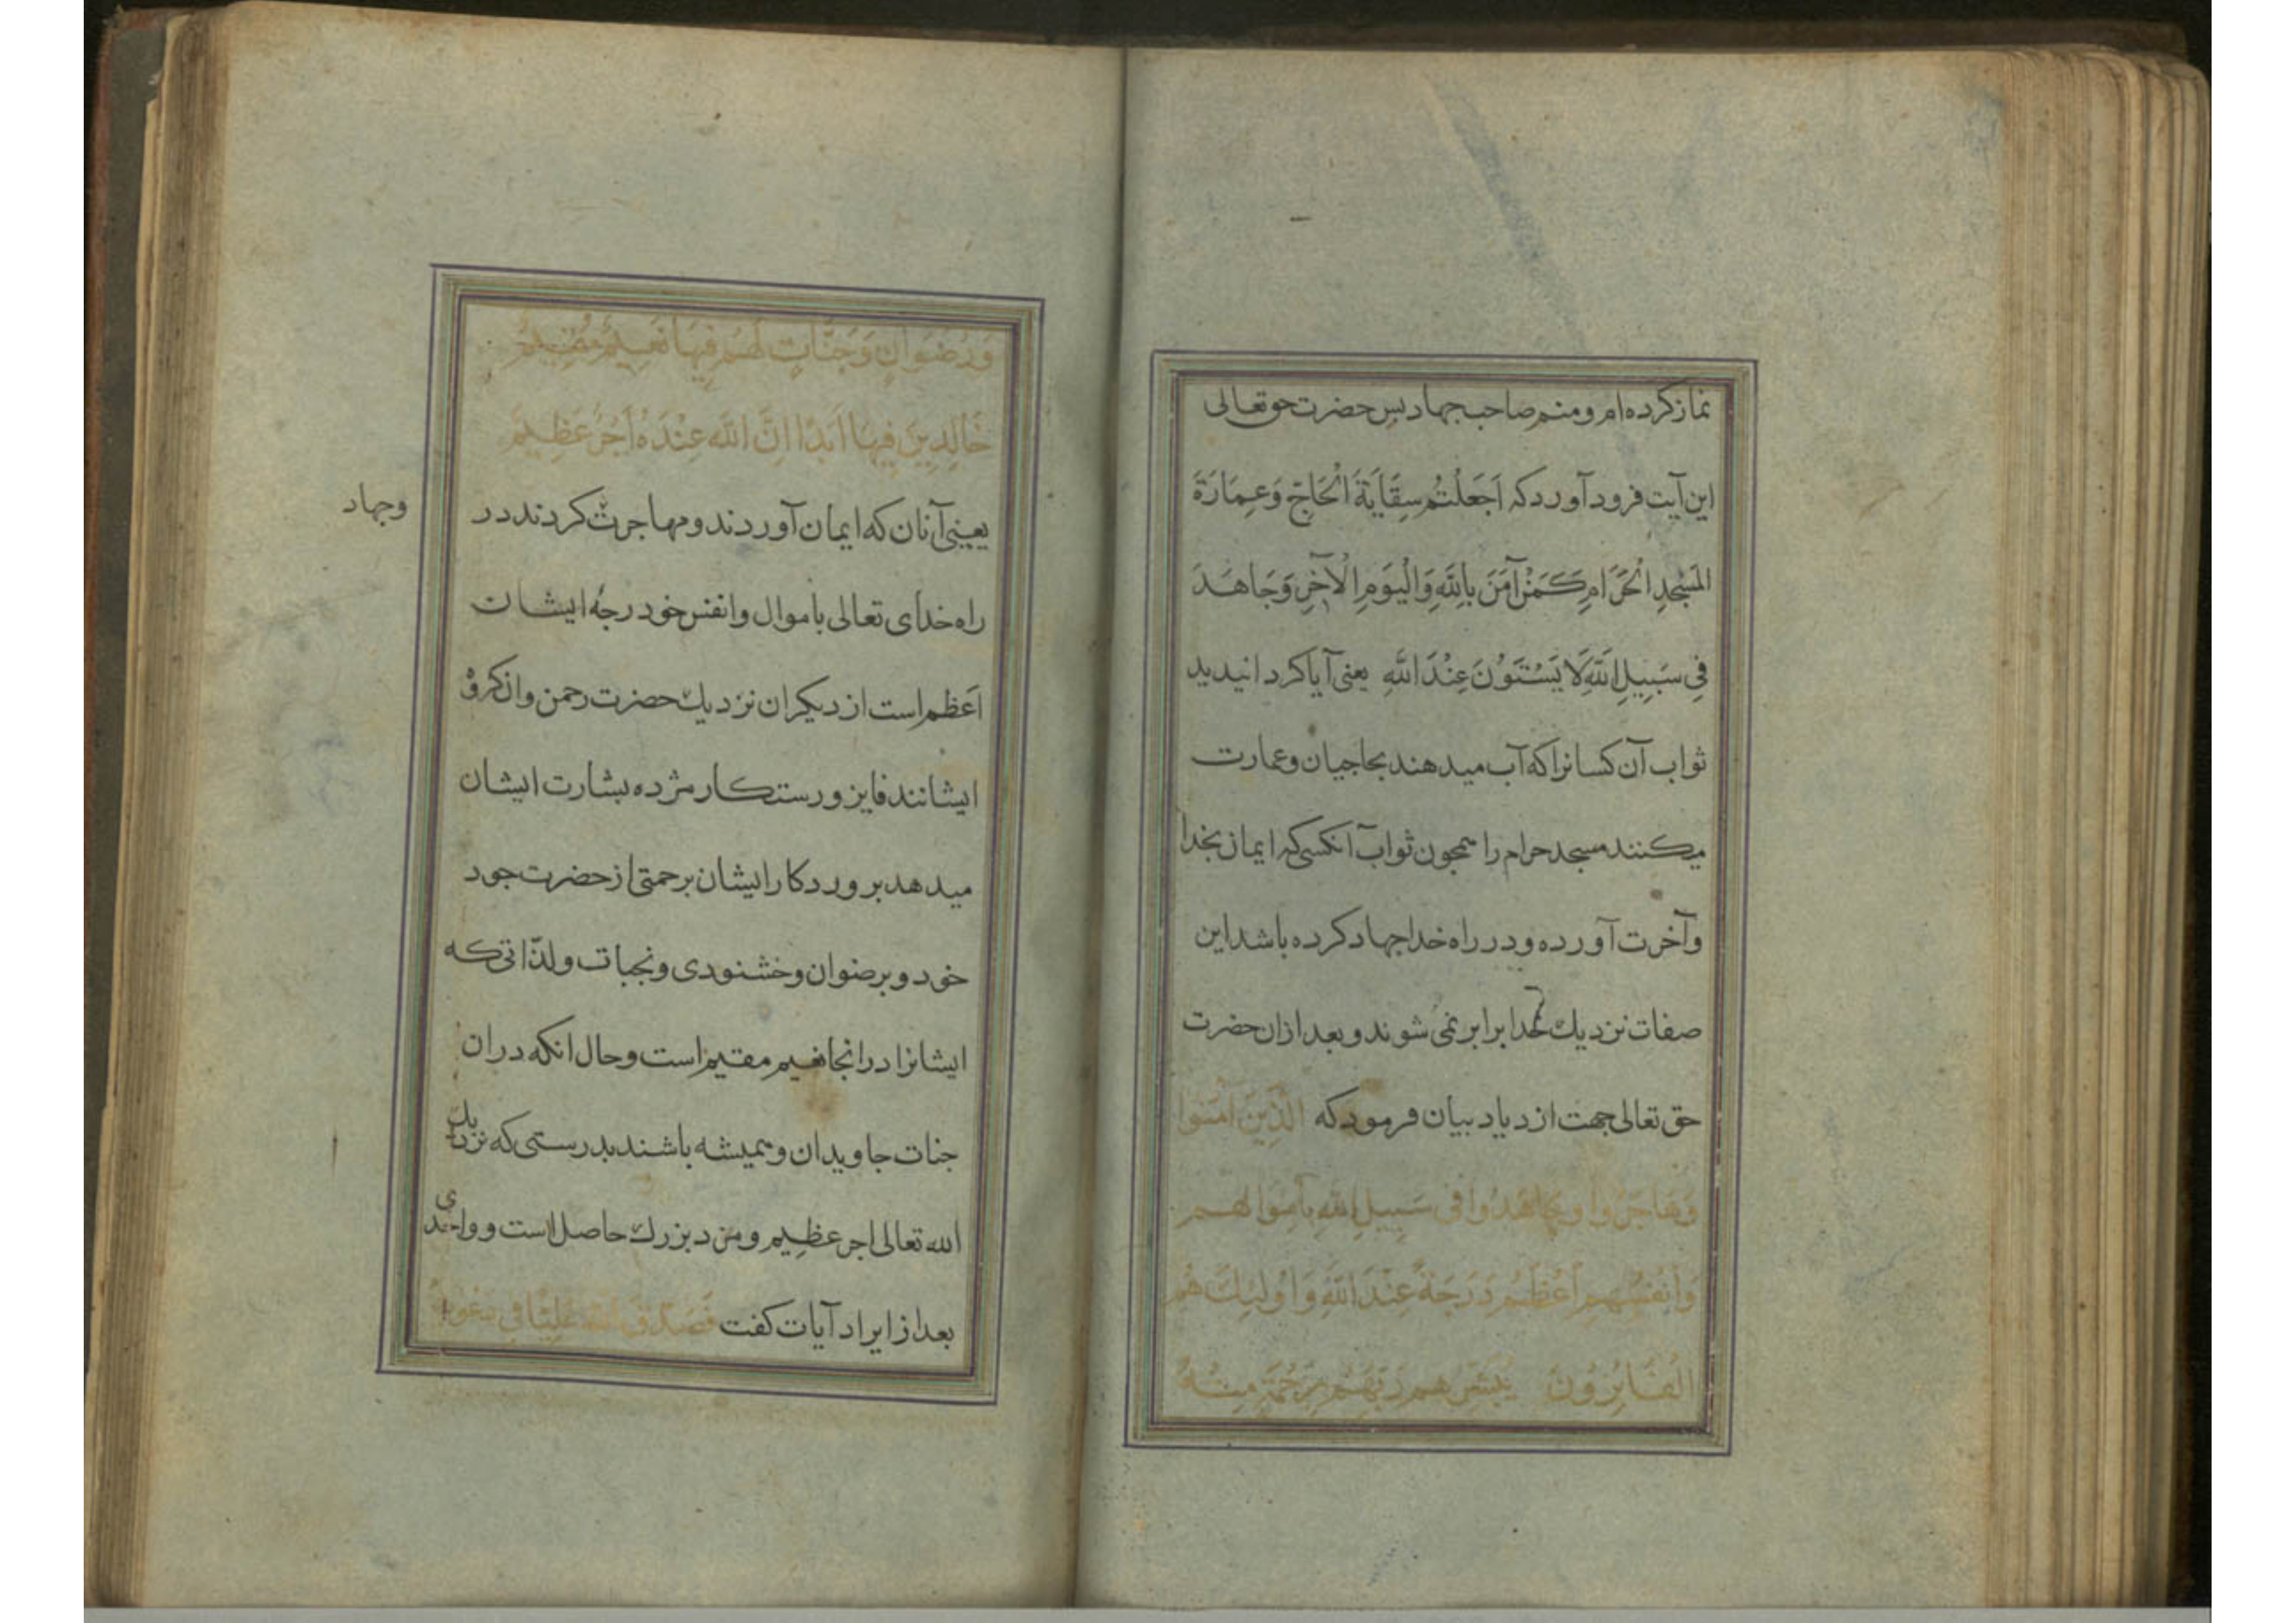 نماز کرده‌ام و منم صاحب جهاد پس حضرت حق تعالی
این آیت فرود آورد که اَجَعَلْتُم سِقَایَةَ الْحَاجّ وَعِمَارَةَ
المَسْجِدِ الْحَرَامِ کَمَنْ آمَنَ بِاللَّهِ وَالْیَومِ الْآخِرِ وَجَاهَدَ
فِی سَبِیلِ اللَّهِ لَا یَسْتَوُنَ عِنْدَ اللَّهِ یعنی آیا کردانیدید
ثواب آن کسانرا که آب میدهند بحاجیان و عمارت
میکنند مسجد حرام را همچون ثواب آنکسی که ایمان بخدا
و آخرت آورده و در راه خدا جهاد کرده باشد این
صفات نزدیك خدا برابر نمی شوند و بعد ازان حضرت
حق تعالی جهت ازدیاد بیان فرمود که الَّذِینَ امَنوا
وَهَاجَرُوا وجَاهَدُوا فی سَبِیلِ اللهِ بِاَموَالهم
وَاَنفُسِهِم اَعْظَمُ دَرَجَةً عِنْدَ اللهِ وَاُولئِكَ هُم
الْفَائِزُونَ یُبَشِّرُهم رَبُّهُم بِرَحْمَةٍ مِنْهُ
وَرِضْوَانٍ وَجَنَّاتٍ لَهُم فِیهَا نَعِیمٌ مُقِیمٌ
خَالِدِینَ فِیهَا اَبَدًا اِنَّ اللَّه عِنْدَهُ اَجْرٌ عَظِیم
یعنی آنان که ایمان آوردند و مهاجرت کردند در
وجهاد
راه خدای تعالی باموال و انفس خود درجهٔ ایشان
اَعظم است از دیکران نزدیك حضرت رحمن و ان کروه
ایشانند فایز و رستکار مژده بشارت ایشان
میدهد پروردکار ایشان برحمتی از حضرت جود
خود و برضوان و خشنودی و بجنات و لذّاتی که
ایشانرا درانجا نعیم مقیم است و حال انکه دران
جنات جاویدان و همیشه باشند بدرستی که نزدیك
الله تعالی اجر عظیم و مزد بزرك حاصل است و واحدی
بعد از ایراد آیات کفت فَصَدَّقَ اللهُ عَلِیًّا فی دَعْوَاهُ